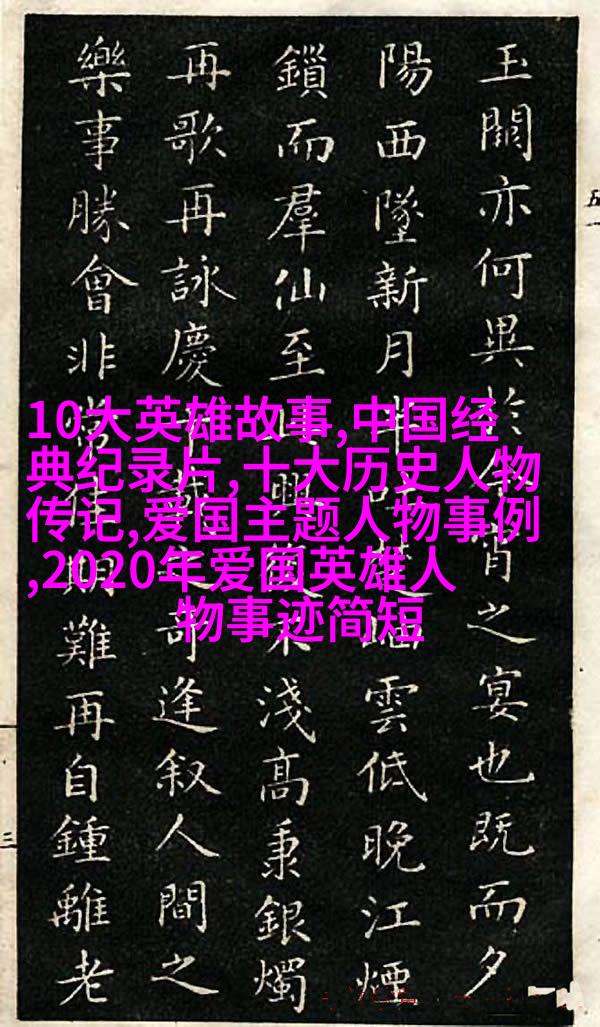 玉闕亦何異於今宵之宴也既而夕
陽西墜新月半吐楚岫雲低晚江煙
鎖而羣仙至止興復不淺高秉銀燭
再歌再詠慶千載之奇逢叙人間之
樂事勝會非常佳期難再自鍾離老
10大英雄故事,中国经
典纪录片,十大历史人物
传记,爱国主题人物事例
,2020年爱国英雄人
物事迹简短
五
三